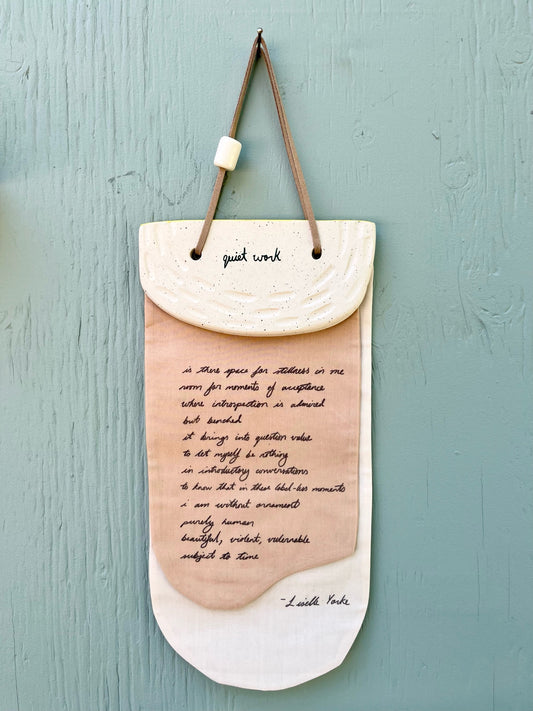 quiet work
is there space for stillness in me
room for moments of acceptance
where introspection is admired
but benched
it brings into question value
to let myself be nothing
in introductory conversations
to know that in these label-less moments
i am without ornament
purely human
beautiful, violent, vulnerable
subject to time
-Liselle Yorke